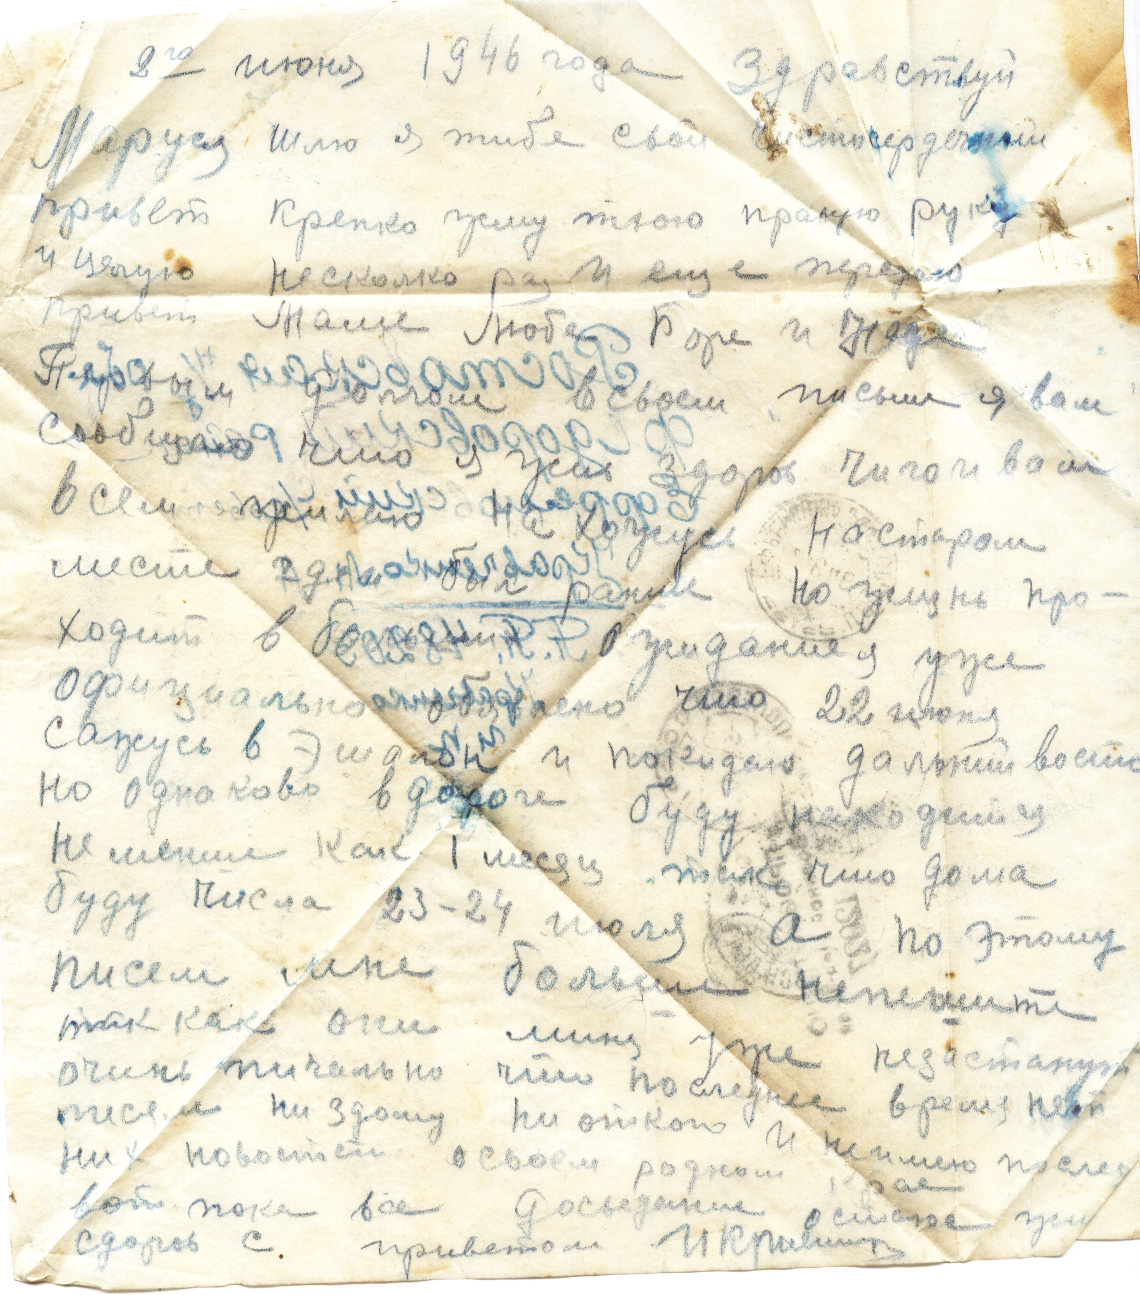 2го июня 1946 года Здравствуй
Маруся шлю я тибе свой чистосердечний
привет крепко жму твою правую руку
и целую несколко раз И еще передаю
привет Маше Любе Боре и Наде
Первым долгом всвоем писме я вам
сообщаю что я жив здоров чиго и вам
всем желаю Нахожусь настаром
месте где и был рание но жизнь про-
ходит в ожидание я уже
официально что 22 июня
сажусь в Эшалон и покидаю дальний восто
но однаково вдороге буду находится
неменше как 1 месяц так что дома
буду числа 23-24 июля а по этому
писем мне больше непешите
так как они миня уже незастанут
очинь пичально что последнее время нет
писем ни здому ни откого И неимею послед
них новостей освоем родном крае
вот пока все Досведание остаюс жив
сдоров с приветом
Ростовская обл
район
Кравченко